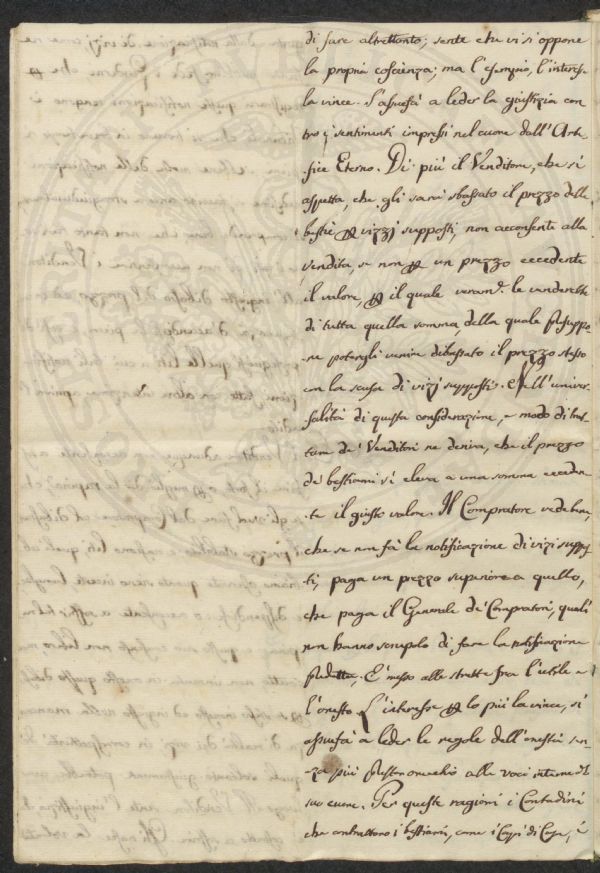 di fare altrettanto; sente che vi si oppone
la propria coscienza; ma l'esempio, l'interes-
la vince. S'assuefà a leder la giustizia con
tro i sentimenti impressi nel cuore dall'Arte
fice Eterno. Di più il Venditore, che si
aspetta, che gli sarà sbassato il prezzo delle
bestie ꝑ vizzj supposti, non acconsente alla
vendita, se non ꝑ un prezzo eccedente
il valore, ꝑ il quale veram.e le venderebbe
di tutta quella somma, della quale presuppo-
ne potergli venire dibassato il prezzo stesso
con la scusa di vizj supposti. Dall'univer
salità di questa considerazione, e modo di trat
tare de' Venditori ne deriva, che il prezzo
de' bestiami si eleva a una sommaecceden
te il giusto valore. Il Compratore vede bene,
che se non fà la notificazione di vizj suppos
ti, paga un prezzo superiore a quello,
che paga il Generale de' Compratori, quali
non hanno scrupolo di fare la notificazione
predetta. È messo alle strette fra l'utile e
l'onesto. L'interesse ꝑ lo più la vince, si
assuefà a leder le regole dell'onestà sen-
za più prestar orecchio alle voci interne del
suo cuore. Per queste ragioni i Contadini
che contrattano i bestiami, come i Capi di Casa, è